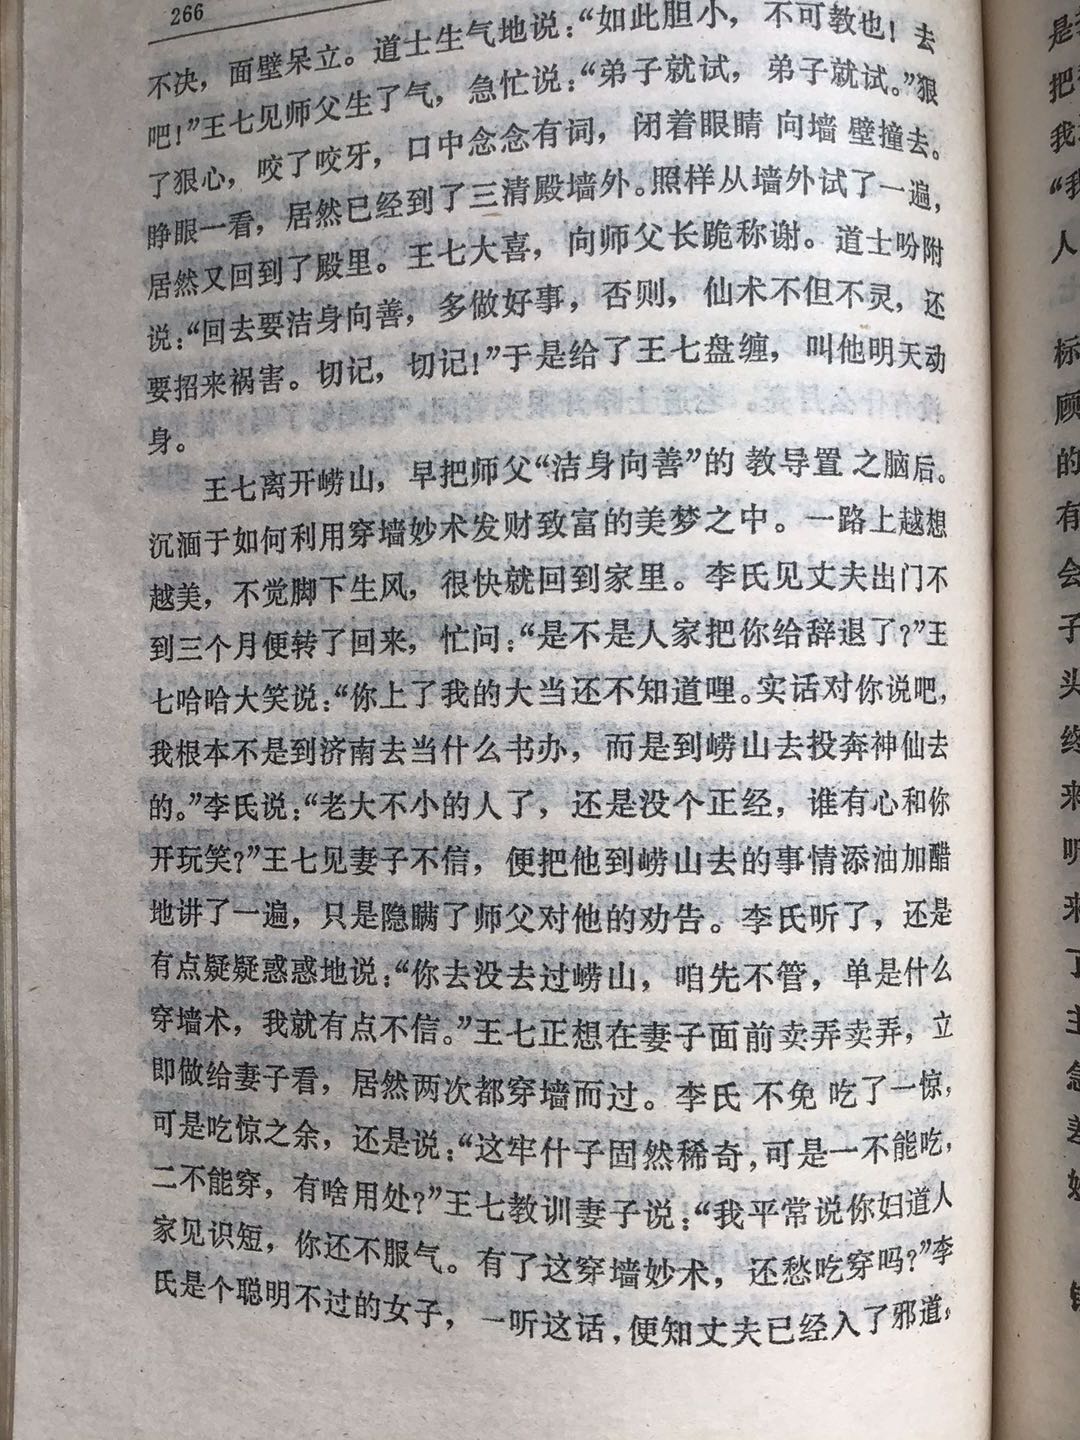 266
不决，面壁呆立。道士生气地说：“如此胆小，不可教也！去
吧！”王七见师父生了气，急忙说：“弟子就试，弟子就试。”狠
了狠心，咬了咬牙，口中念念有词，闭着眼睛向墙壁撞去。
睁眼一看，居然已经到了三清殿墙外。照样从墙外试了一遍，
居然又回到了殿里。王七大喜，向师父长跪称谢。道士吩咐
说：“回去要洁身向善，多做好事，否则，仙术不但不灵，还
要招来祸害。切记，切记！”于是给了王七盘缠，叫他明天动
身。
王七离开崂山，早把师父“洁身向善”的教导置之脑后。
沉湎于如何利用穿墙妙术发财致富的美梦之中。一路上越想
越美，不觉脚下生风，很快就回到家里。李氏见丈夫出门不
到三个月便转了回来，忙问：“是不是人家把你给辞退了？”王
七哈哈大笑说：“你上了我的大当还不知道哩。实话对你说吧，
我根本不是到济南去当什么书办，而是到崂山去投奔神仙去
的。”李氏说：“老大不小的人了，还是没个正经，谁有心和你
开玩笑？”王七见妻子不信，便把他到崂山去的事情添油加醋
地讲了一遍，只是隐瞒了师父对他的劝告。李氏听了，还是
有点疑疑惑惑地说：“你去没去过崂山，咱先不管，单是什么
穿墙术，我就有点不信。”王七正想在妻子面前卖弄卖弄，立
即做给妻子看，居然两次都穿墙而过。李氏不免吃了一惊，
可是吃惊之余，还是说：“这牢什子固然稀奇，可是一不能吃，
二不能穿，有啥用处？”王七教训妻子说：“我平常说你妇道人
家见识短，你还不服气。有了这穿墙妙术，还愁吃穿吗？”李
氏是个聪明不过的女子，一听这话，便知丈夫已经入了邪道，
把
我
“我
人
标
顾
的
有
会
子
头
终
来
听
来
了
主
急
差